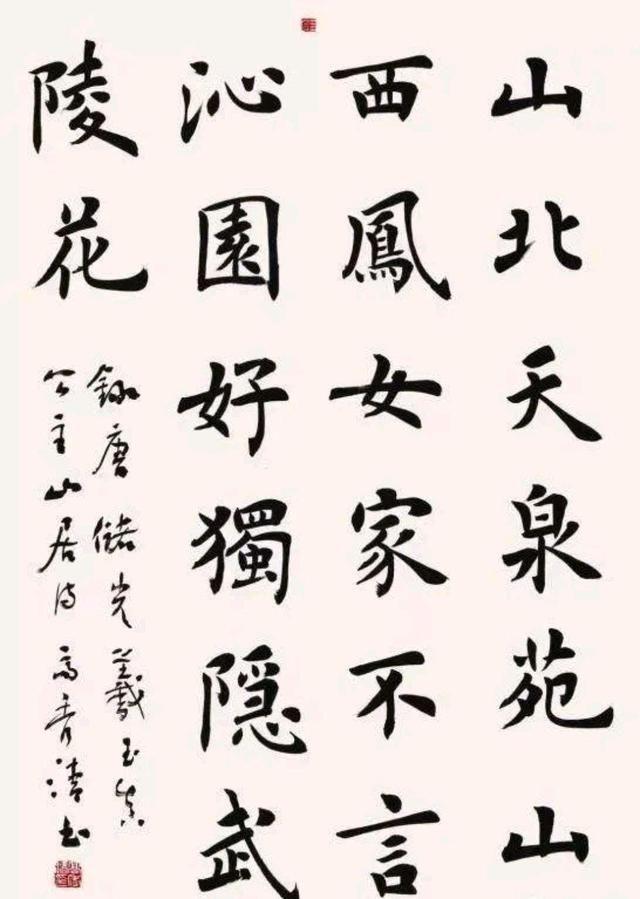 山北天泉苑山
西鳳女家不言
沁園好獨隱武
陵花
録唐儲光羲玉真
公主山居詩 高秀清书